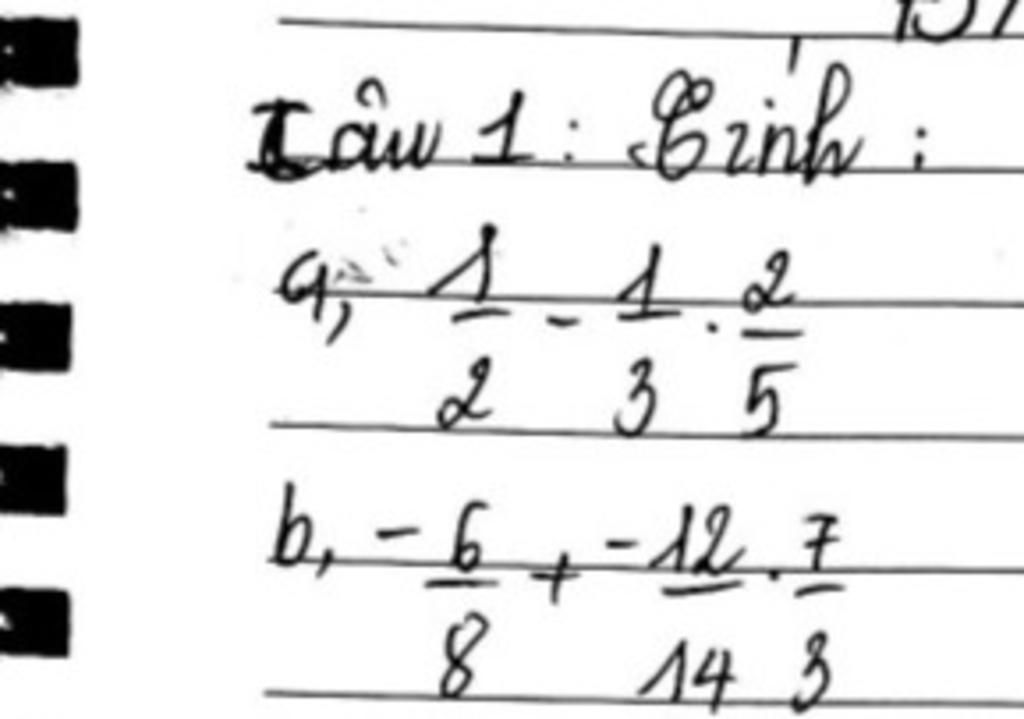 Câu 1: Tính:
a, 1/2 - 1/3 . 2/5
b, -6/8 + -12/14 . 7/3